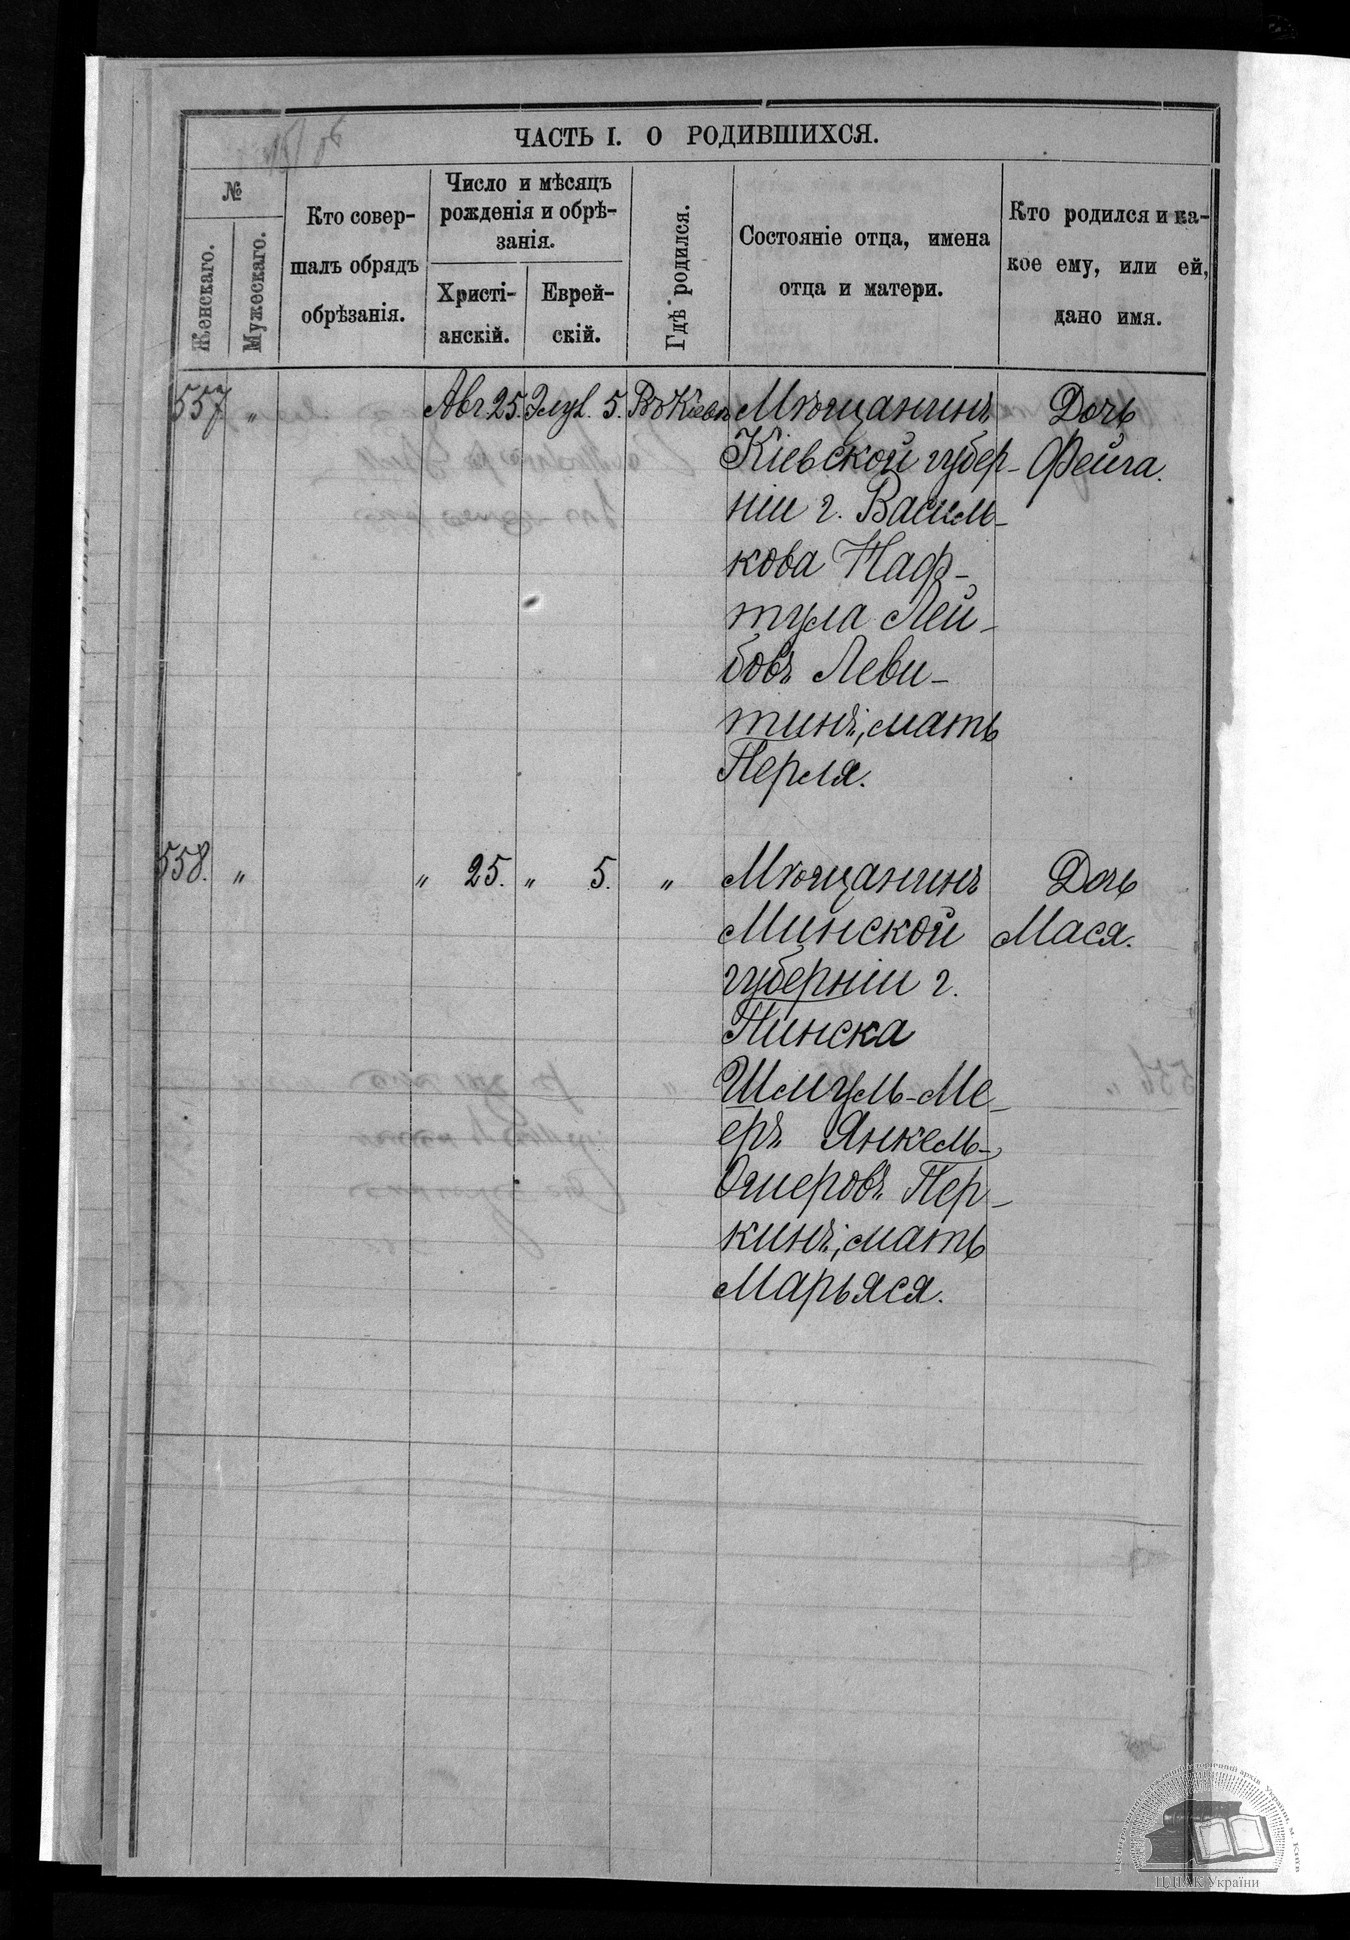 ЧАСТЬ I. О РОДИВШИХСЯ.
№
Женскаго.
Мужескаго.
Кто совер-
шалъ обрядъ
обрѣзанія.
Число и мѣсяцъ
рожденія и обрѣ-
занія.
Христі-
анскій.
Еврей-
скій.
Гдѣ родился.
Состояніе отца, имена
отца и матери.
Кто родился и ка-
кое ему, или ей,
дано имя.
557 „ Авг. 25. Элул. 5. Въ Кіевѣ Мѣщанинъ Дочь
Кіевской губер- Фейга.
ніи г. Василь-
кова Наф-
тула Лей-
бовъ Леви-
тинъ, мать
Перля.
558. „ „ 25. „ 5. „ Мѣщанинъ Дочь
Минской Мася.
губерніи г.
Пинска
Шмуль-Ме-
еръ Янкель-
Ошеровъ Пер-
кинъ, мать
Марьяся.
ЦДІАК України